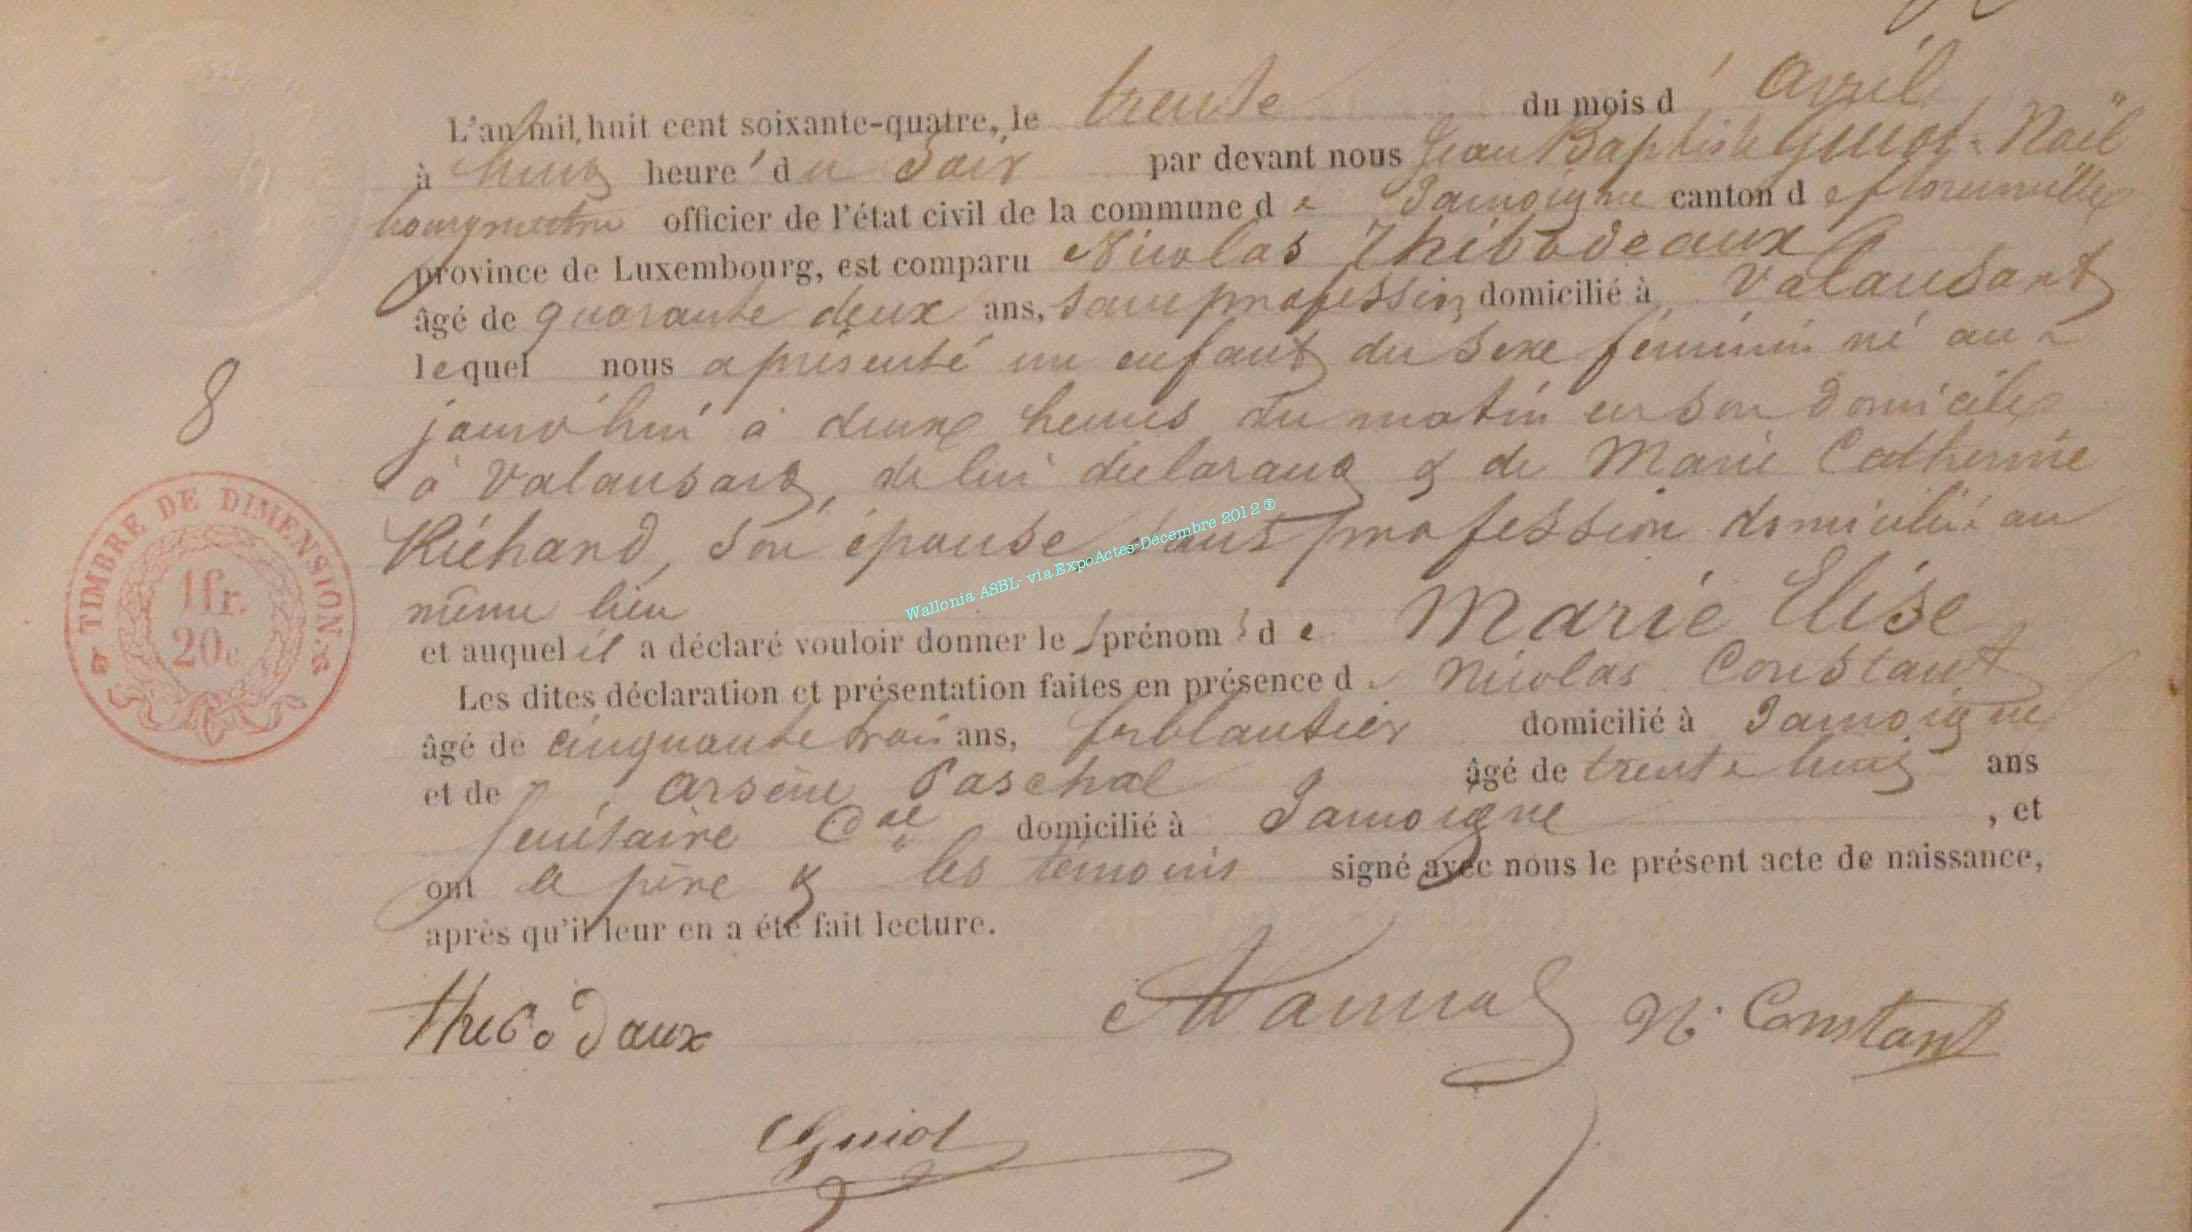 L'an mil huit cent soixante-quatre, le trente du mois d'Avril
à huit heure' du Soir par devant nous Jean Baptiste Guiot-Noël
bourgmestre officier de l'état civil de la commune de Jamoigne canton de florenville
province de Luxembourg, est comparu Nicolas Thibodeaux
âgé de quarante deux ans, sans profession domicilié à Valansart
lequel nous a présenté un enfant du sexe féminin né au-
jourd'hui à deux heures du matin en son domicile
à Valansart, de lui déclarant & de Marie Catherine
Richard, son épouse sans profession domicilié au
même lieu
et auquel il a déclaré vouloir donner les prénoms de Marie Elise
Les dites déclaration et présentation faites en présence de Nicolas Constant
âgé de cinquante trois ans, ferblantier domicilié à Jamoigne
et de Arsène Paschal âgé de trente huit ans
domicilié à Jamoigne, et
ont le père & les témoins signé avec nous le présent acte de naissance,
après qu'il leur en a été fait lecture.
8
TIMBRE DE DIMENSION.
1fr.
20c
Wallonia ASBL- via ExpoActes-Décembre 2012 ®
Thibodaux
N. Constant
Guiot